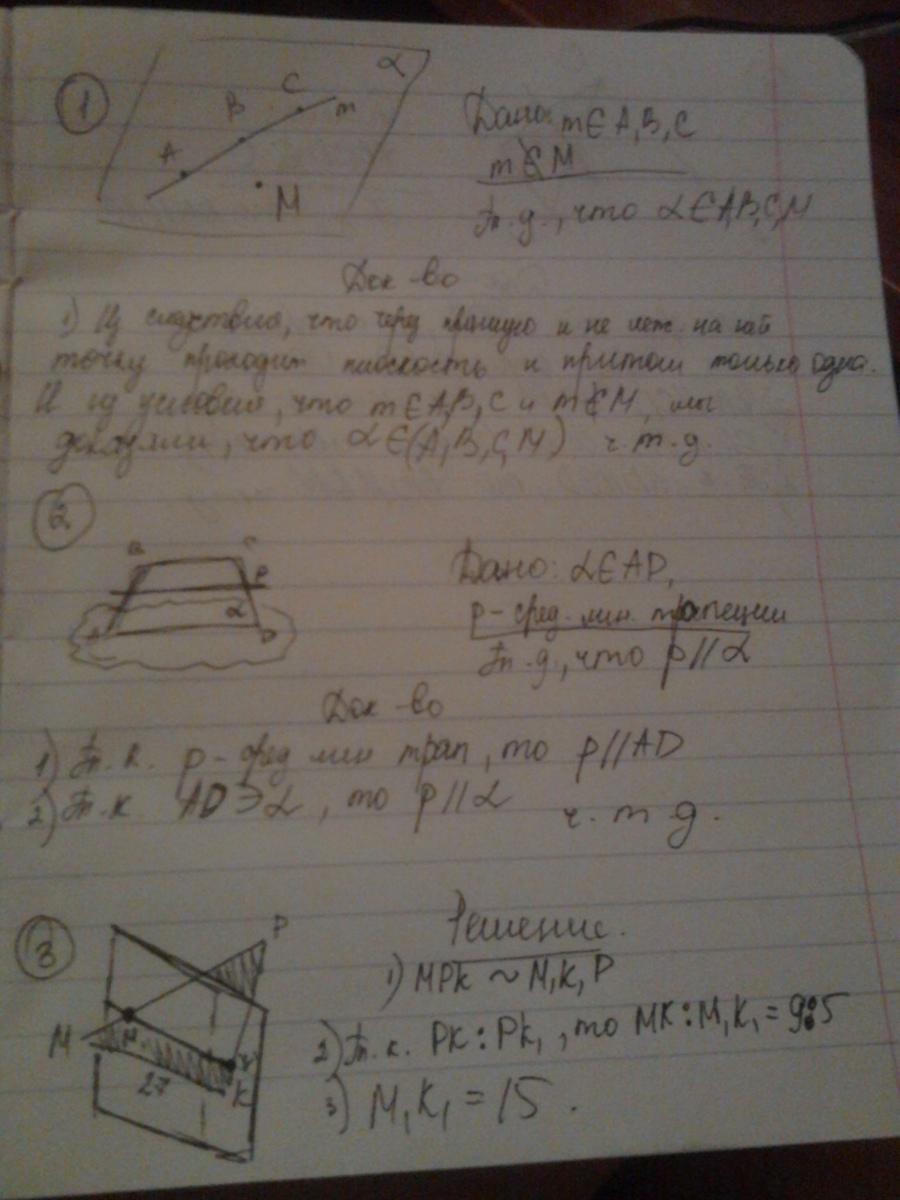 1
α
A
B
C
m
M
Дано: m∈A,B,C
m∉M
Т.д., что α∈A,B,C,M
Док-во
1) Из следствия, что через прямую и не леж. на ней
точку проходит плоскость и притом только одна.
И из условия, что m∈A,B,C и m∉M, мы
доказали, что α∈(A,B,C,M) ч.т.д.
2
B C
P
α
A D
Дано: α∈AD,
p-сред. лин. трапеции
Т.д., что p//α
Док-во
1) Т.к. p-сред лин трап, то p//AD
2) Т.к AD∋α, то p//α
ч.т.д.
3
P
M
27
K
Решение.
1) MPK ~ M₁K₁P
2) Т.к. PK:PK₁, то MK:M₁K₁=9:5
3) M₁K₁=15.